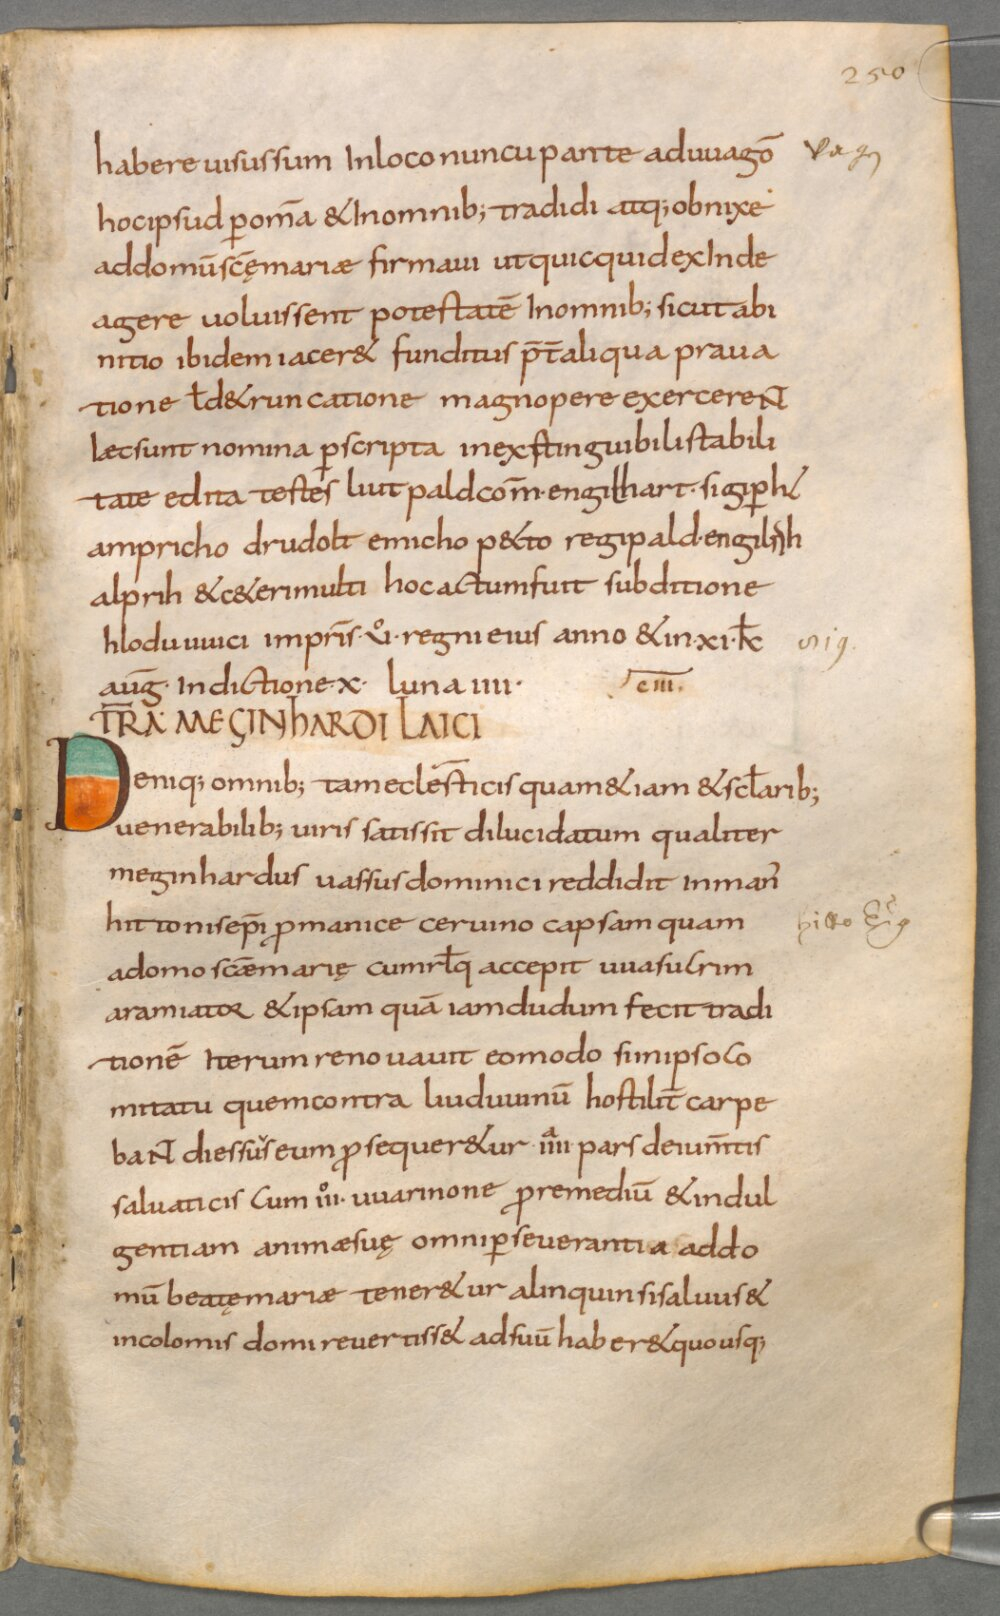 250
habere uisussum Inloco nuncupante aduuagō
hocipsud ꝑom̄a &Inomnib; tradidi atq; obnixe
addomū sc̄ę mariæ firmaui utquicquidexInde
agere uoluissent potestatē Inomnib; sicut abi
nitio ibidem iacer& funditus p̄t aliqua praua
tione ł d&runcatione magnopere exercereNt
Haec sunt nomina ꝑscripta inexstinguibili stabili
tate edita testes liutpald com̄· engilhart· sigiꝑht
ampricho drudolt emicho p&to regipald· engilrih
alprih &c&eri multi hoc actum fuit subditione
hloduuuici impr̄is· ui· regni eius anno &in· xi· kł
aug̅· Indictione· x· luna iiii·
ciii.
TR̄A MEGINhARDI LAICI
Deniq; omnib; tam eclesīasticis quam&iam &scłarib;
uenerabilib; uiris satissit dilucidatum qualiter
meginhardus uassus dominici reddidit inman̄
hittonis ep̄i ꝓmanice ceruino capsam quam
adomo scæ marię cumrłq accepit uuasucrim
aramiator &ipsam quā iamdudum fecit tradi
tionē Iterum renouauit eomodo sinipso co
mitatu quem contra liuduuinū hostilit̄ carpe
baNt dies sus̄ eum ꝓsequer&ur· iiii· pars de ium̄tis
saluaticis cum iii· uuarinone ꝓremediū &indul
gentiam animæ suę omni ꝑseuerantia addo
mū beatę mariæ tener&ur alinquin si saluus&
incolomis domi reuertiss& adsuū haber& quousq;
uag
sig.
hitto